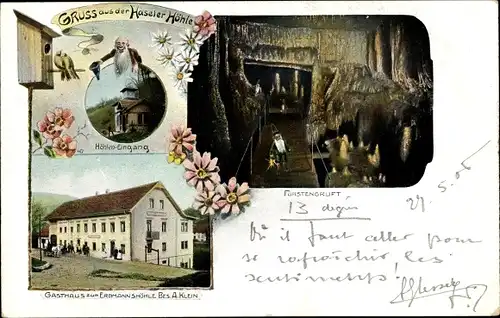 Gruss aus der Haseler Höhle
Höhlen-Eingang
FÜRSTENGRUFT
27.5.06
13 degrés
Où il faut aller pour
se rafraîchir, les
sentiments!
GASTHAUS ZUR ERDMANNSHÖHLE BES. A. KLEIN